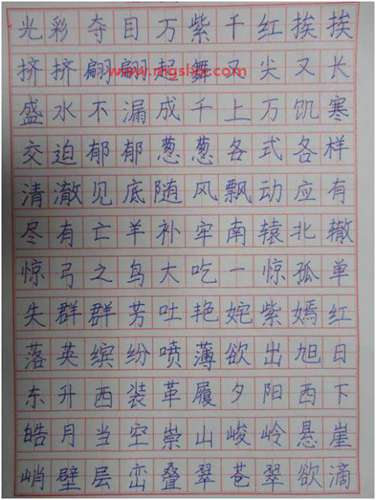 光彩夺目万紫千红挨挨
挤挤翩翩起舞又尖又长
www.mgslw.com
盛水不漏成千上万饥寒
交迫郁郁葱葱各式各样
清澈见底随风飘动应有
尽有亡羊补牢南辕北辙
惊弓之鸟大吃一惊孤单
失群群芳吐艳姹紫嫣红
落英缤纷喷薄欲出旭日
东升西装革履夕阳西下
皓月当空崇山峻岭悬崖
峭壁层峦叠翠苍翠欲滴